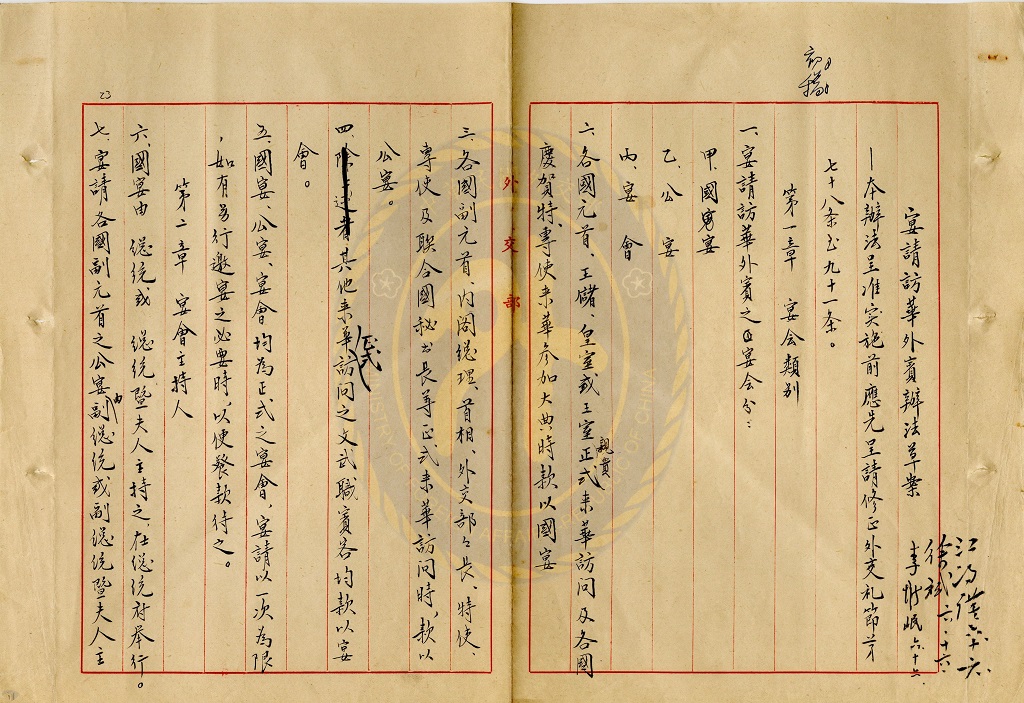 初稿
宴請訪華外賓辦法草案
李
六十六
徐
六、十六、
江
六、十六、
一本辦法呈准实施前應先呈請修正外交礼節第
七十八条至九十一条。
第一章 宴会類别
一、宴請訪華外賓之宴会分：
甲、國宴
乙、公宴
丙、宴會
二、各國元首、王儲、皇室或王室親貴正式来華訪問及各國
慶賀特、專使来華參加大典時款以國宴
外交部
三、各國副元首、内阁總理、首相、外交部々長、特使、
專使及聯合國秘书長等正式来華訪問時，款以
公宴。
四、其他来華正式訪問之文武職賓客均款以宴
會。
五、國宴、公宴、宴會均為正式之宴會，宴請以一次為限
，如有另行邀宴之必要時，以便餐款待之。
第二章 宴會主持人
六、國宴由 總統或 總統暨夫人主持之，在總統府舉行。
七、宴請各國副元首之公宴由副總統或副總統暨夫人主
23